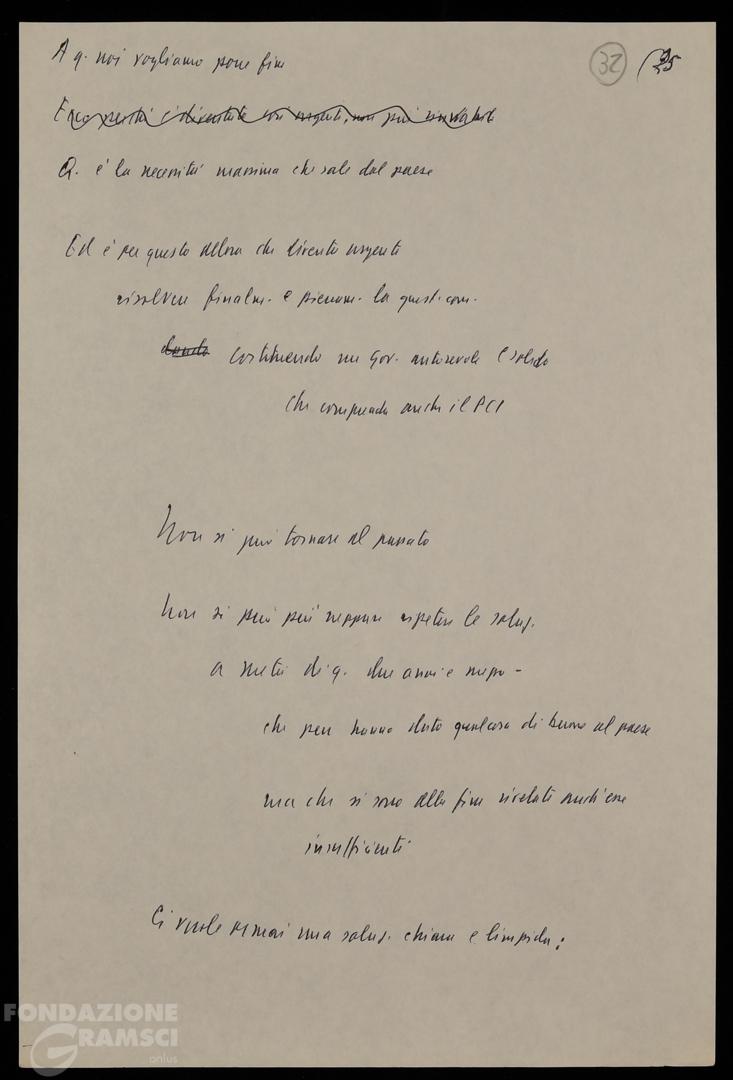 A q. noi vogliamo porre fine
32 35
Ecco perché è diventato così urgente, non più rinviabile
Q. è la necessità massima che sale dal paese
Ed è per questo allora che diventa urgente
risolvere finalm. e pienam. la quest. com.
dando costituendo un Gov. autorevole e solido
che comprenda anche il PCI
Non si può tornare al passato
Non si può più neppure ripetere le soluz.
a metà di q. due anni e mezzo -
che pur hanno dato qualcosa di buono al paese
ma che si sono alla fine rivelate anch'esse
insufficienti
Ci vuole ormai una soluz. chiara e limpida:
FONDAZIONE
GRAMSCI
onlus